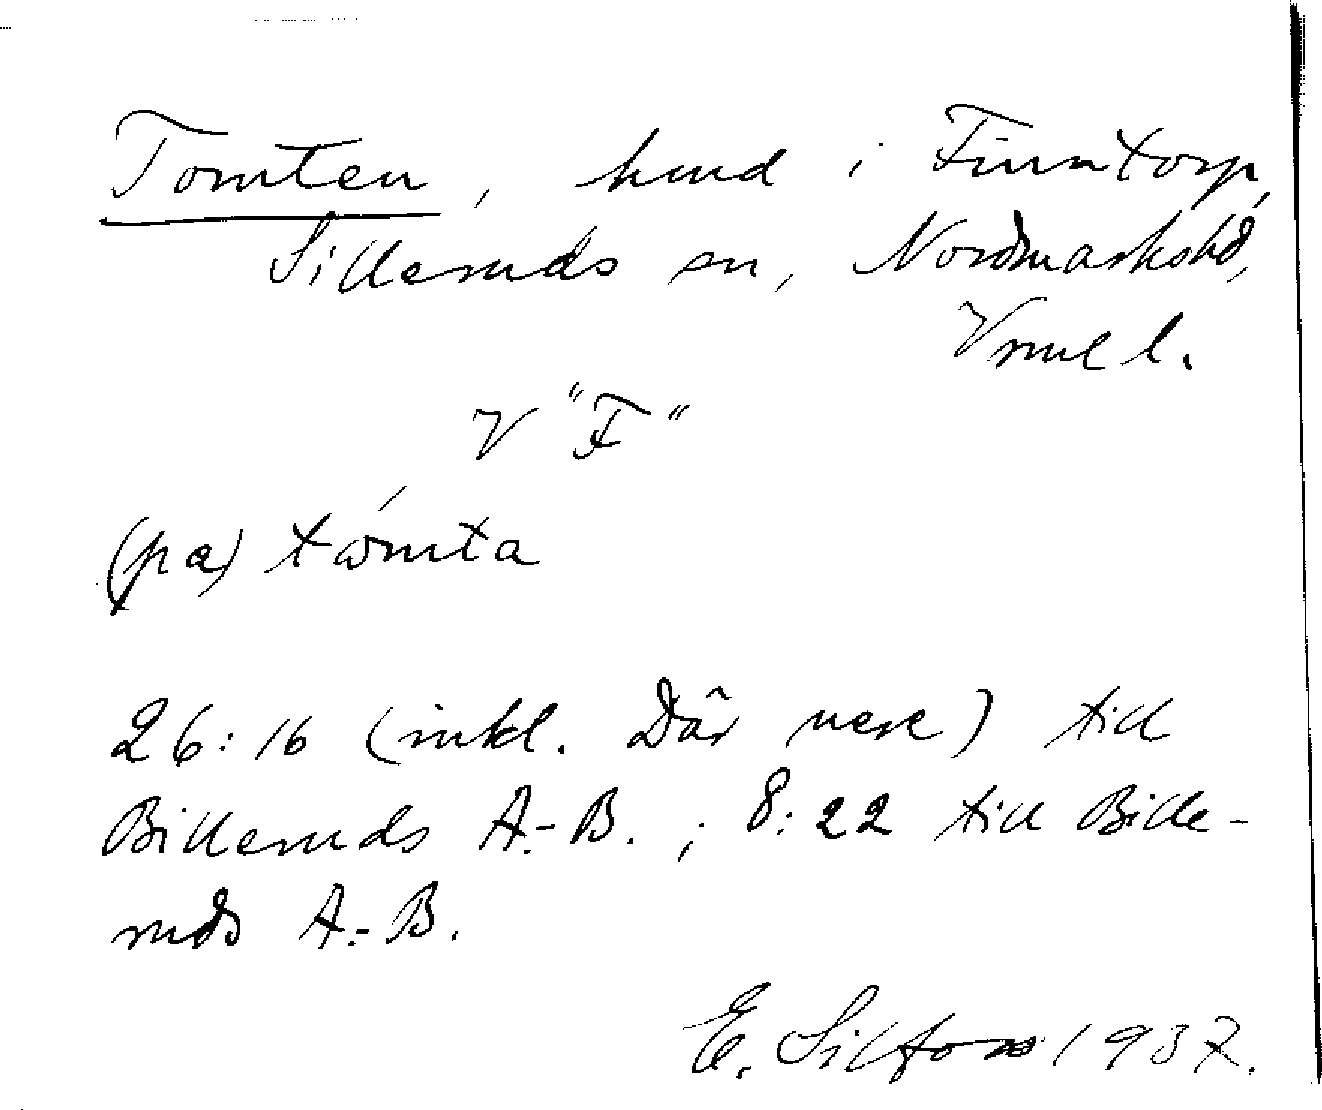 Tomten, hmd i Finntorp,
Silleruds sn, Nordmarkshd,
Vrml.
V "F"
(pa) tώmta
26:16 (inkl. Där nere) till
Billeruds A.-B.; 8:22 till Bille-
ruds A.-B.
E. Silfors 1937.